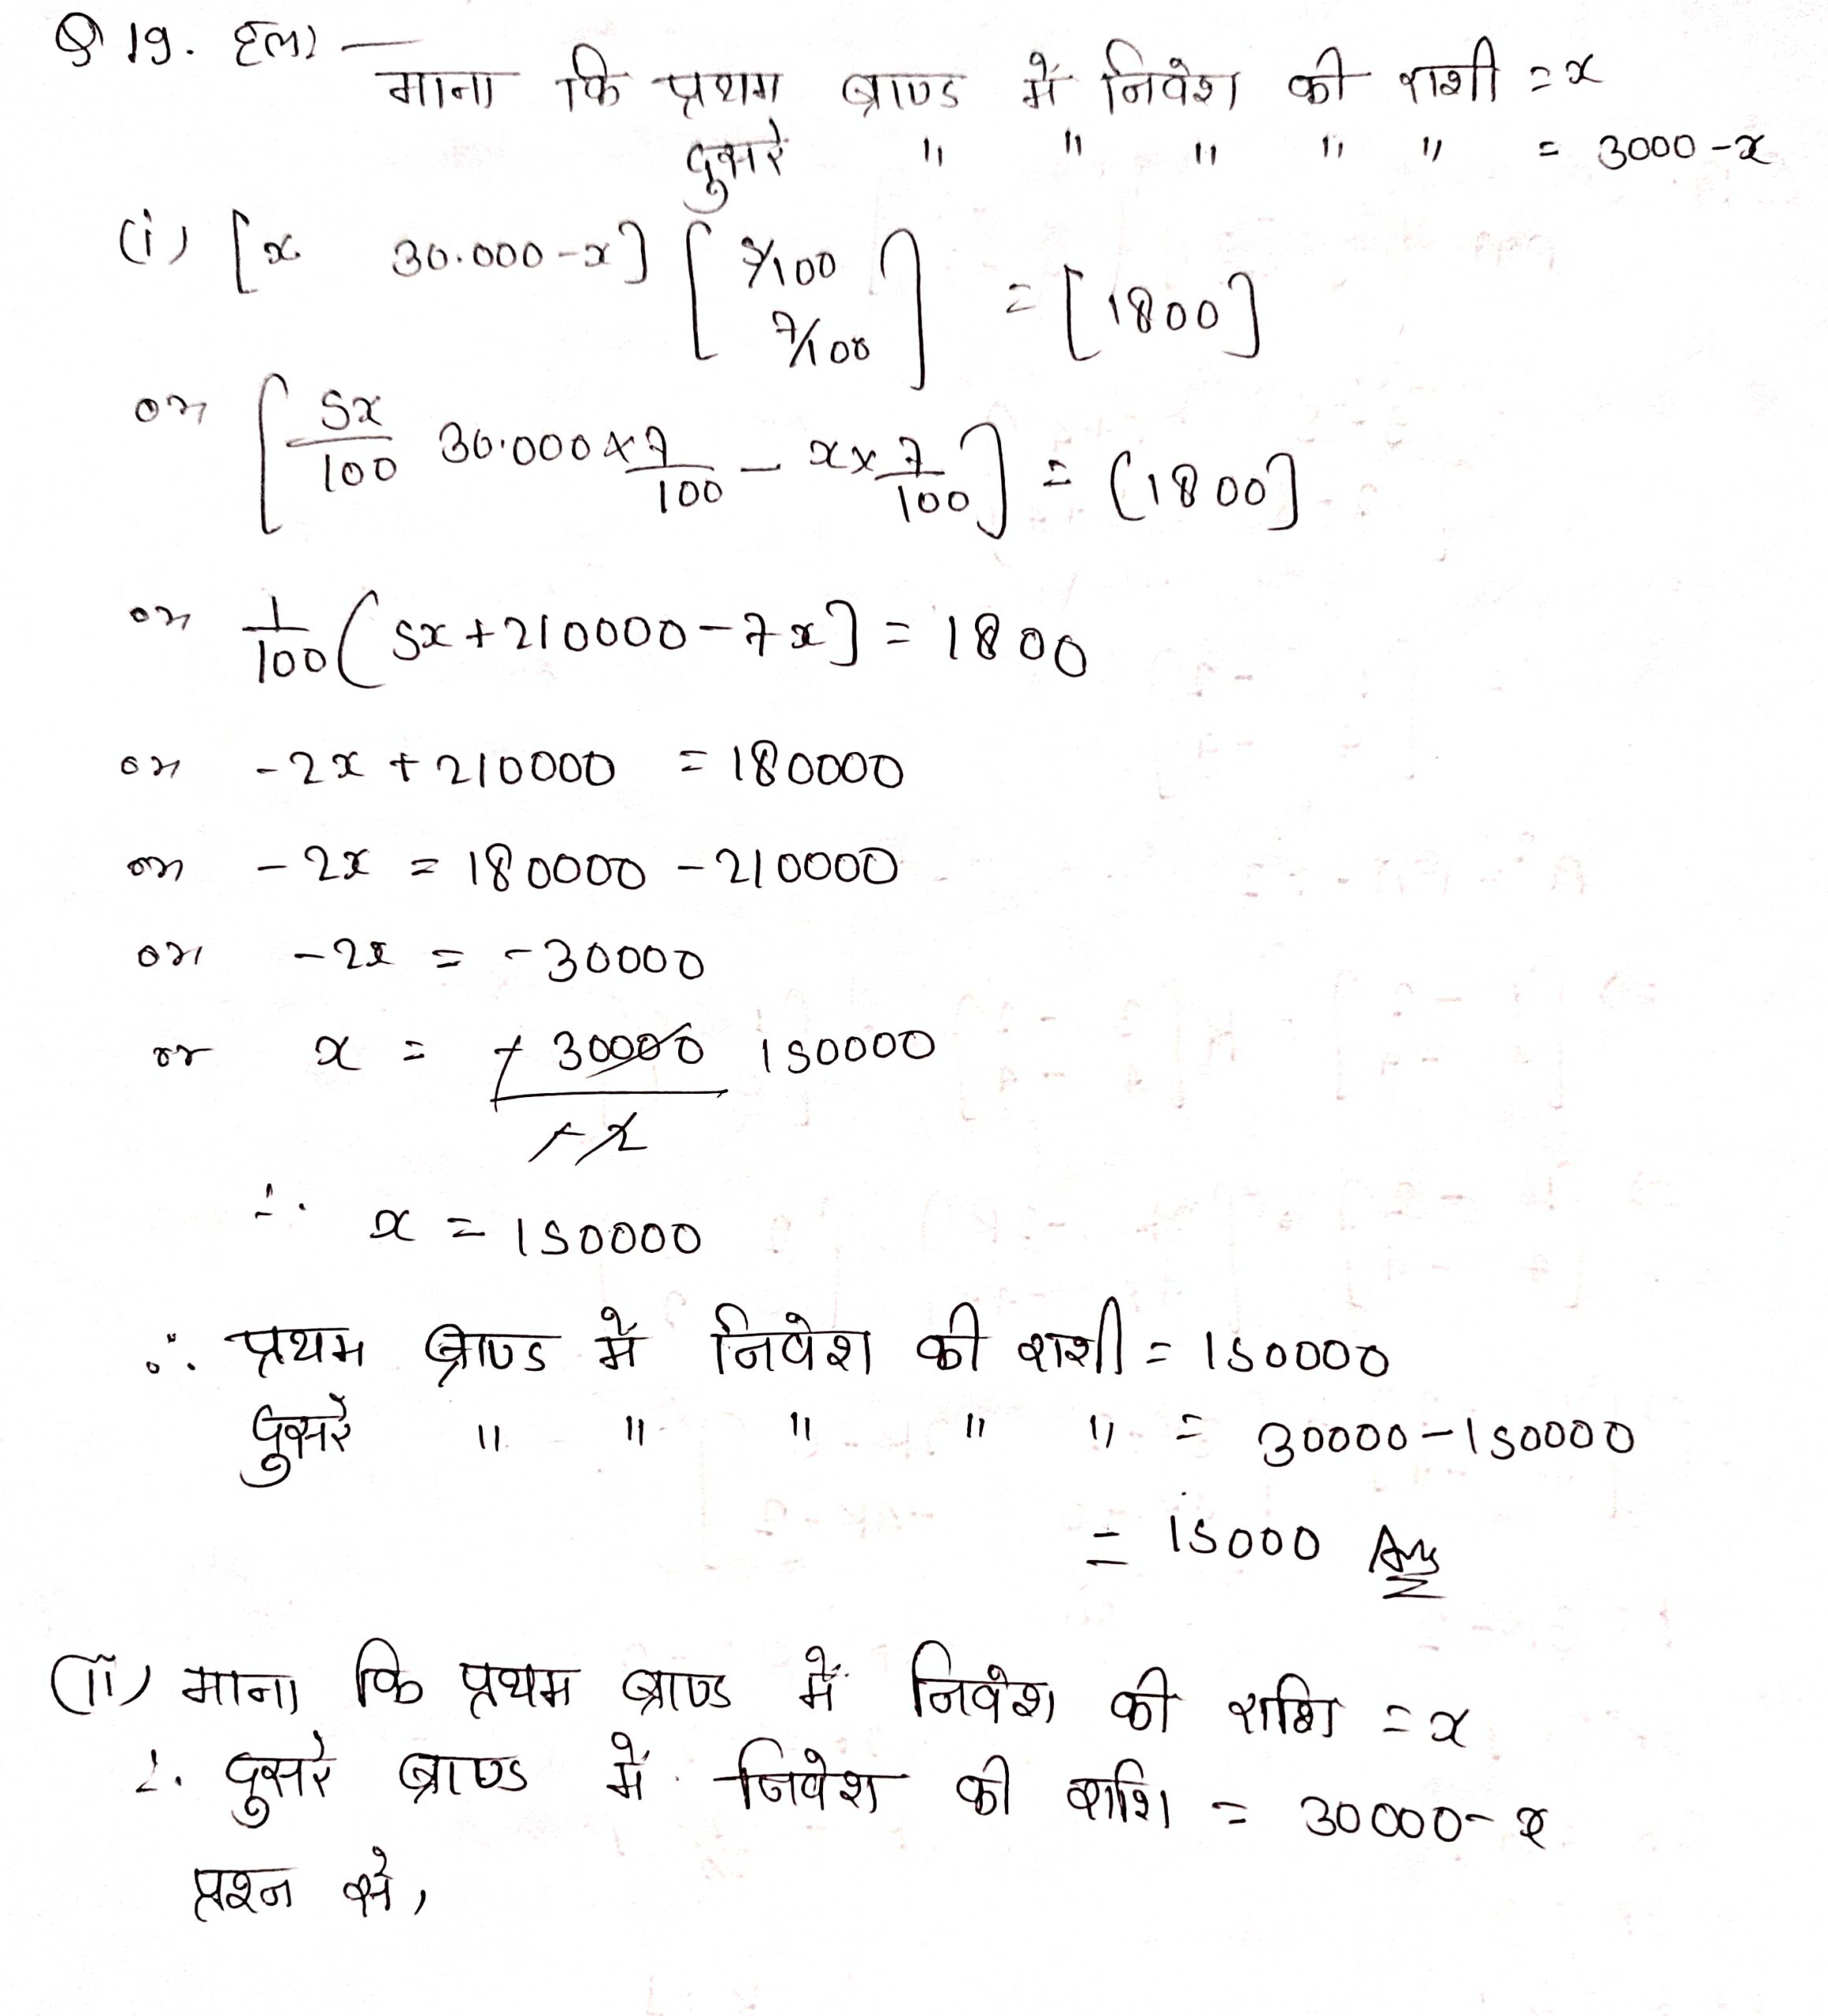 Q 19. हल:—
माना कि प्रथम ब्राण्ड में निवेश की राशी = x
दुसरे " " " " " = 3000 - x
(i) [x 30.000 - x] [5/100 7/100] = [1800]
or [5x/100 30.000 × 7/100 - x × 7/100] = [1800]
or 1/100 (5x + 210000 - 7x] = 1800
or - 2x + 210000 = 180000
or - 2x = 180000 - 210000
or - 2x = - 30000
or x = - 30000 / - 2 150000
∴ x = 150000
∴ प्रथम ब्राण्ड में निवेश की राशी = 150000
दुसरे " " " " " = 30000 - 150000
= 15000 Ans
(ii) माना कि प्रथम ब्राण्ड में निवेश की राशि = x
∴ दुसरे ब्राण्ड में निवेश की राशि = 30000 - x
प्रश्न से,